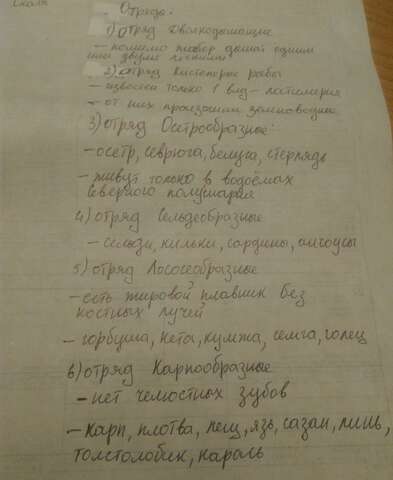 Отряды:
1) Отряд Двоякодышащие
– помимо жабер дышат одним
или двумя лёгкими
2) Отряд Кистеперые рыбы
– известен только 1 вид – латимерия
– от них произошли земноводные
3) отряд Осетрообразные:
– осетр, севрюга, белуга, стерлядь
– живут только в водоёмах
северного полушария
4) отряд Сельдеобразные
– сельди, кильки, сардины, анчоусы
5) отряд Лососеобразные
– есть жировой плавник без
костных лучей
– горбуша, кета, кумжа, семга, голец
6) отряд Карпообразные
– нет челюстных зубов
– карп, плотва, лещ, язь, сазан, линь,
толстолобик, карась